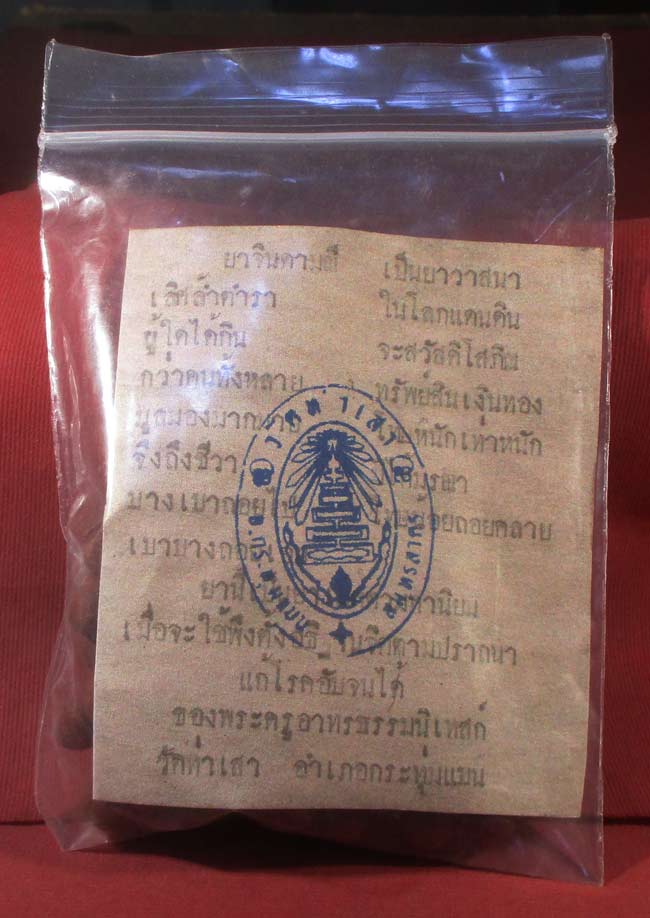 ยาจินดามณี เป็นยาวาสนา
เลิศล้ำตำรา ในโลกแดนดิน
ผู้ใดได้กิน จะสวัสดิโสภิณ
กว่าคนทั้งหลาย ทรัพย์สินเงินทอง
มูลมอง หนักเท่าหนัก
จึงถึงชีวา
บางเบาถอย ถอยคลาย
เบาบาง
ยานี้
เมื่อจะใช้พึงตั้ง จิตตามปรารถนา
แก้โรคอับจนได้
ของพระครูอาทรธรรมนิเทสก์
วัดท่าเสา อำเภอกระทุ่มแบน
วัดท่าเสา
สมุทรสาคร